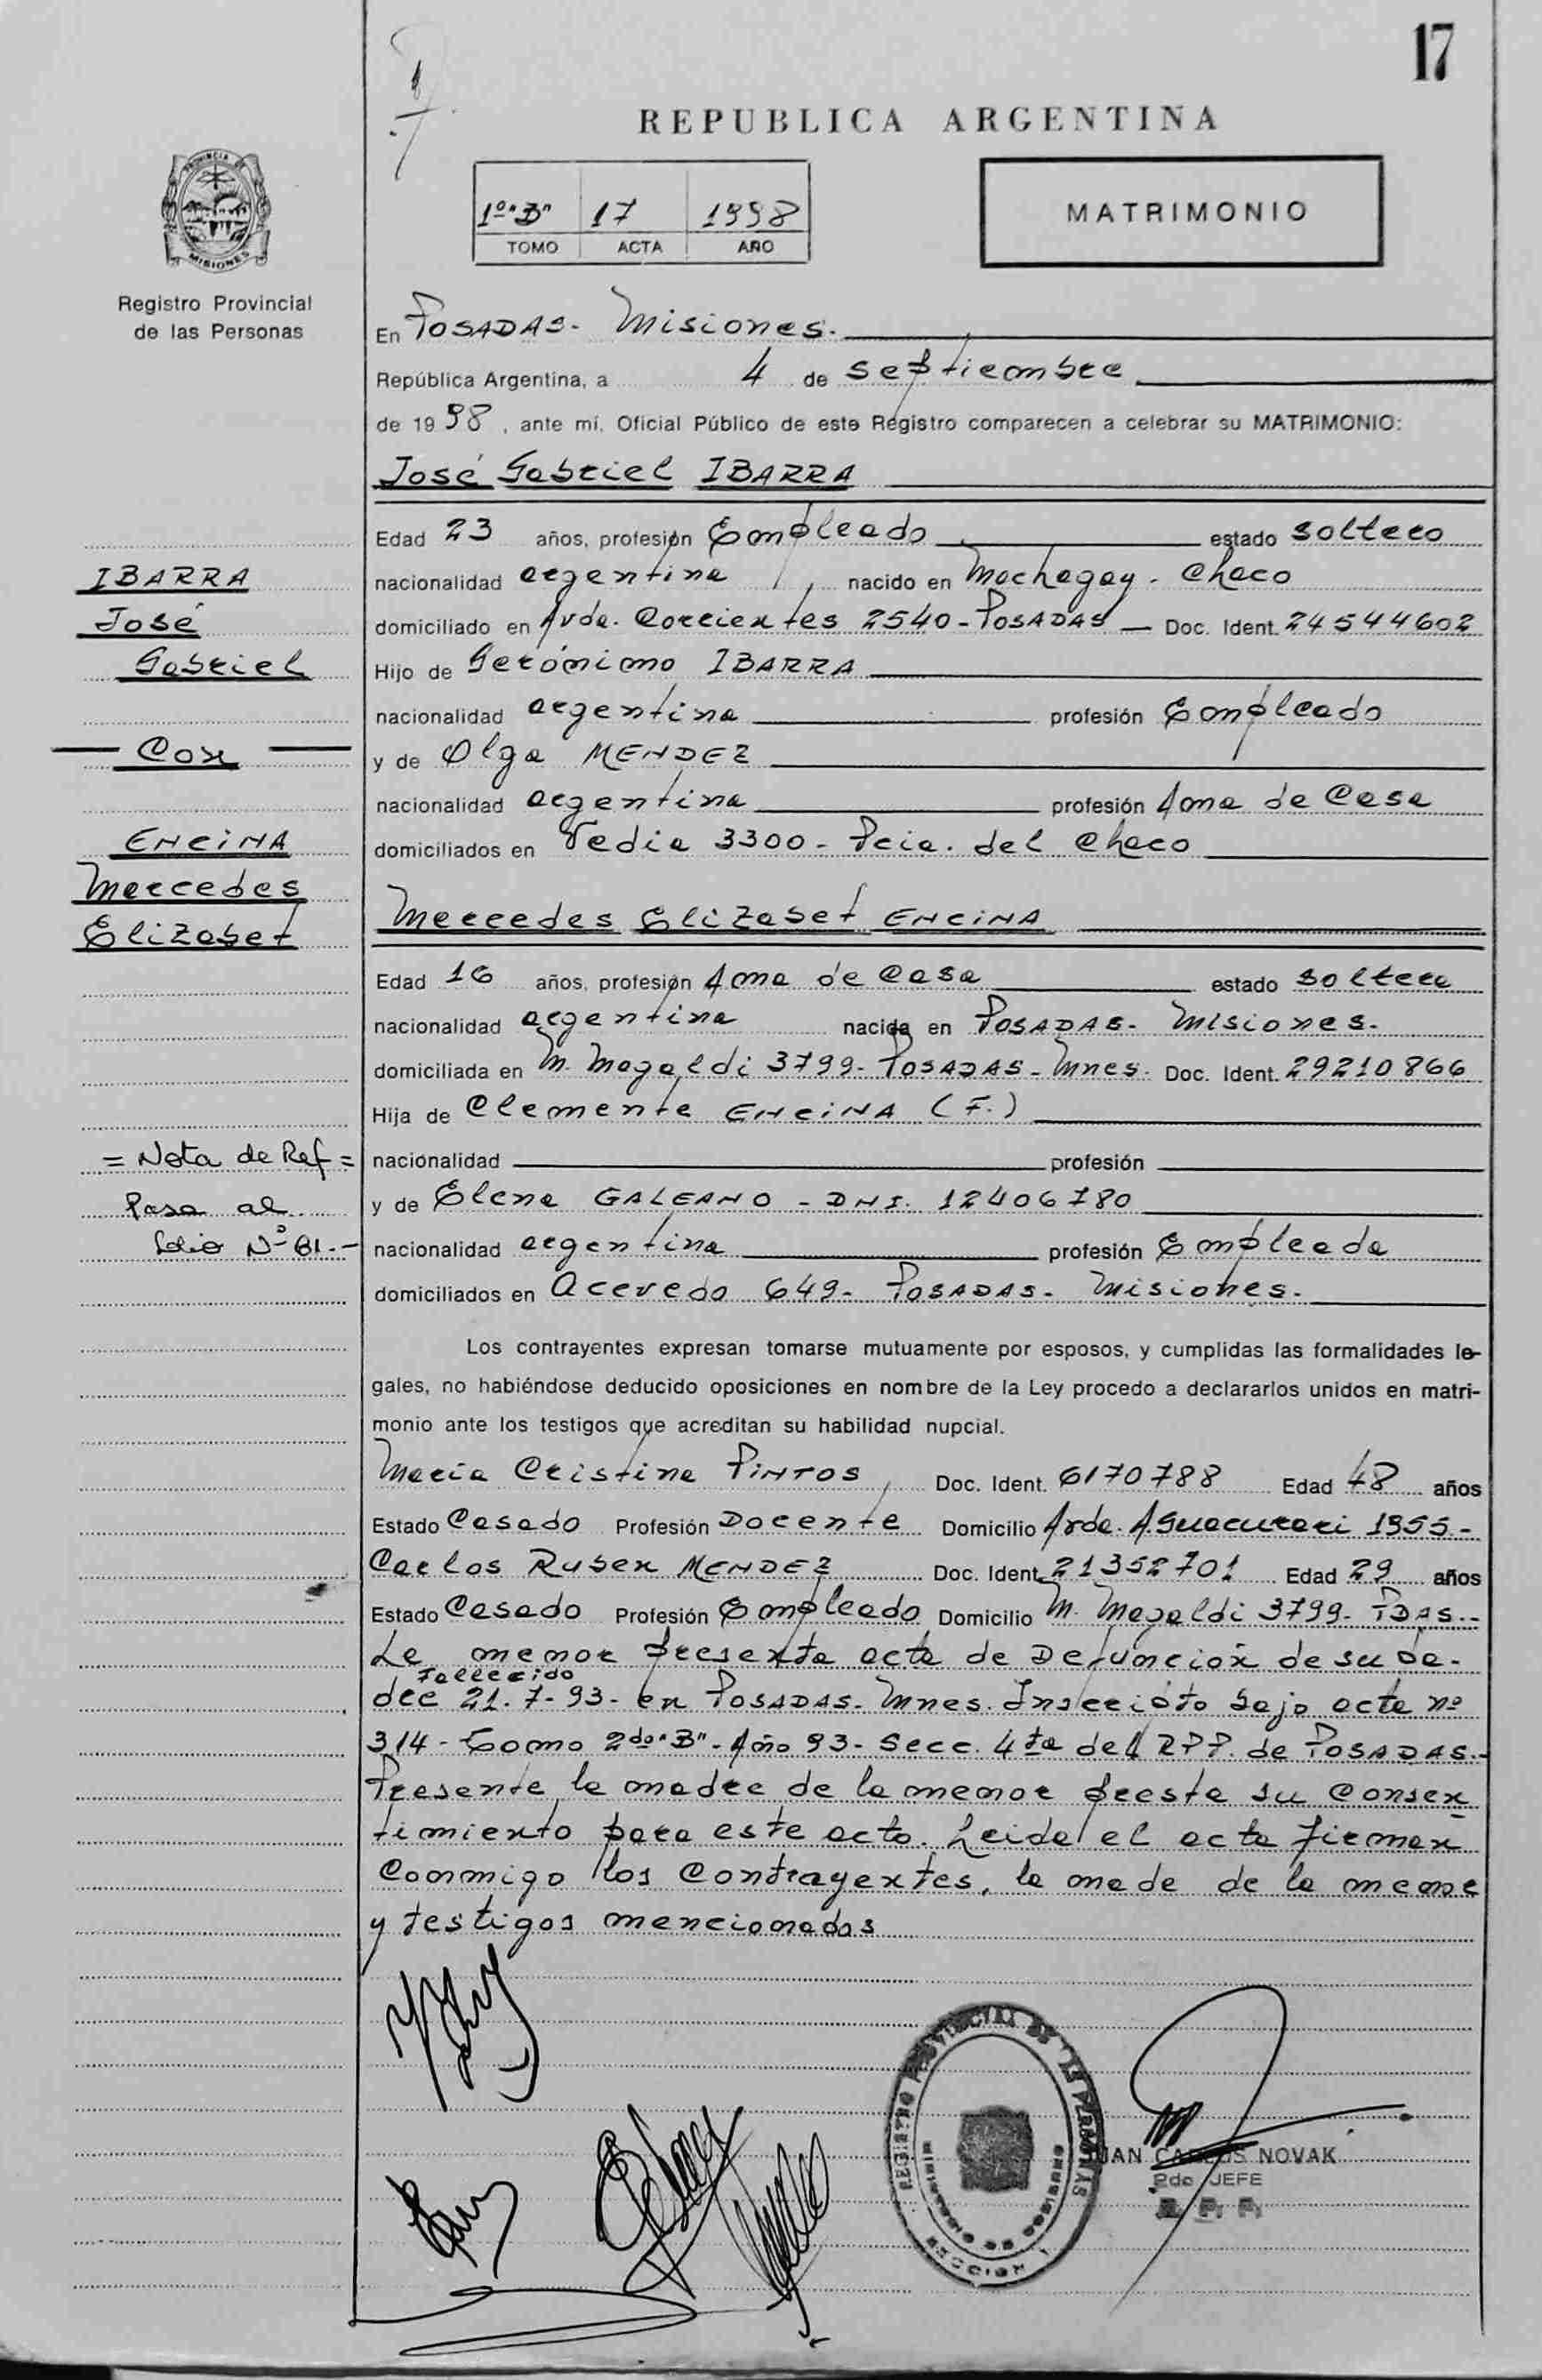 17
REPUBLICA ARGENTINA
1º "B" 17 1998
TOMO ACTA AÑO
MATRIMONIO
PROVINCIA DE MISIONES
Registro Provincial
de las Personas
En POSADAS - Misiones.
República Argentina, a 4 de septiembre
de 1998, ante mí, Oficial Público de este Registro comparecen a celebrar su MATRIMONIO:
José Gabriel IBARRA
Edad 23 años, profesión Empleado estado soltero
nacionalidad argentina nacido en Machagay - Chaco
domiciliado en Avda. Corrientes 2540 - POSADAS Doc. Ident. 24544602
Hijo de Gerónimo IBARRA
nacionalidad argentina profesión Empleado
y de Olga MENDEZ
nacionalidad argentina profesión Ama de Casa
domiciliados en Vedia 3300 - Pcia. del Chaco
IBARRA
José
Gabriel
Con
ENCINA
Mercedes
Elizabet
Mercedes Elizabet ENCINA
Edad 16 años, profesión Ama de Casa estado soltera
nacionalidad argentina nacida en POSADAS - Misiones.
domiciliada en M. Magaldi 3799 - POSADAS - Mnes. Doc. Ident. 29210866
Hija de Clemente ENCINA (F.)
nacionalidad profesión
y de Elena GALEANO - DNI. 12406780
nacionalidad argentina profesión Empleada
domiciliados en Acevedo 649 - POSADAS - Misiones.
= Nota de Ref =
Pasa al
folio Nº 81.-
Los contrayentes expresan tomarse mutuamente por esposos, y cumplidas las formalidades le-
gales, no habiéndose deducido oposiciones en nombre de la Ley procedo a declararlos unidos en matri-
monio ante los testigos que acreditan su habilidad nupcial.
María Cristina PINTOS Doc. Ident. 6170788 Edad 48 años
Estado Casado Profesión Docente Domicilio Avda. A. Guacurari 1955 -
Carlos Ruben MENDEZ Doc. Ident. 21352701 Edad 29 años
Estado Casado Profesión Empleado Domicilio M. Magaldi 3799 - PDAS.-
La menor presenta acta de Defuncion de su pa-
fallecido
dre 21.7-93 - en POSADAS - Mnes. Inscripto bajo acta nº
314 - Tomo 2do "B" - Año 93 - Secc. 4ta del RPP. de POSADAS.-
Presente la madre de la menor presta su Consen
timiento para este acto. Leida el acta firman
Conmigo los Contrayentes, la made de la menor
y testigos mencionados
REGISTRO PROVINCIAL DE LAS PERSONAS
MINISTERIO DE GOBIERNO
SECCION
JUAN CARLOS NOVAK
2do JEFE
R. P. P.